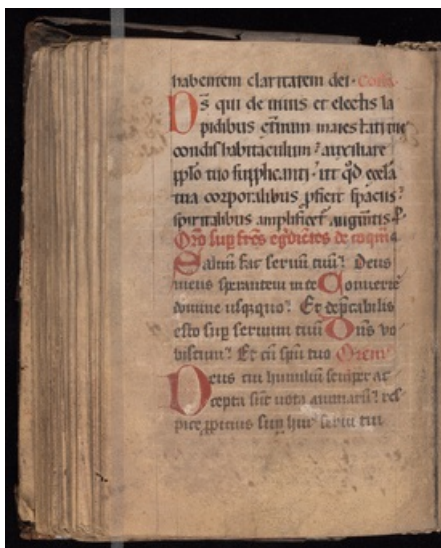 habentem claritatem dei. Com̄.
Ds̄ qui de uiuis et electis la
pidibus et̄num maiestati tue
condis habitaculum: auxiliare
pplo tuo supplicanti. ut qd̄ eccl̄a
tua corporalibus p̄ficit spaciis:
spiritalibus amplificet̄ augm̄tis. P.
Oro sup frēs eḡdiētes de coqina
Saluum fac seruū tuū: Deus
meus sperantem in te Conuerte
domine usqꝫquo: Et dep̄cabilis
esto sup seruum tuū Dn̄s vo
biscum: Et cū spū tuo Oremꝰ
Deus cui humiliū semper ac
cepta sūt uota animarū: res
pice ꝓpitius sup hūc seruū tuū